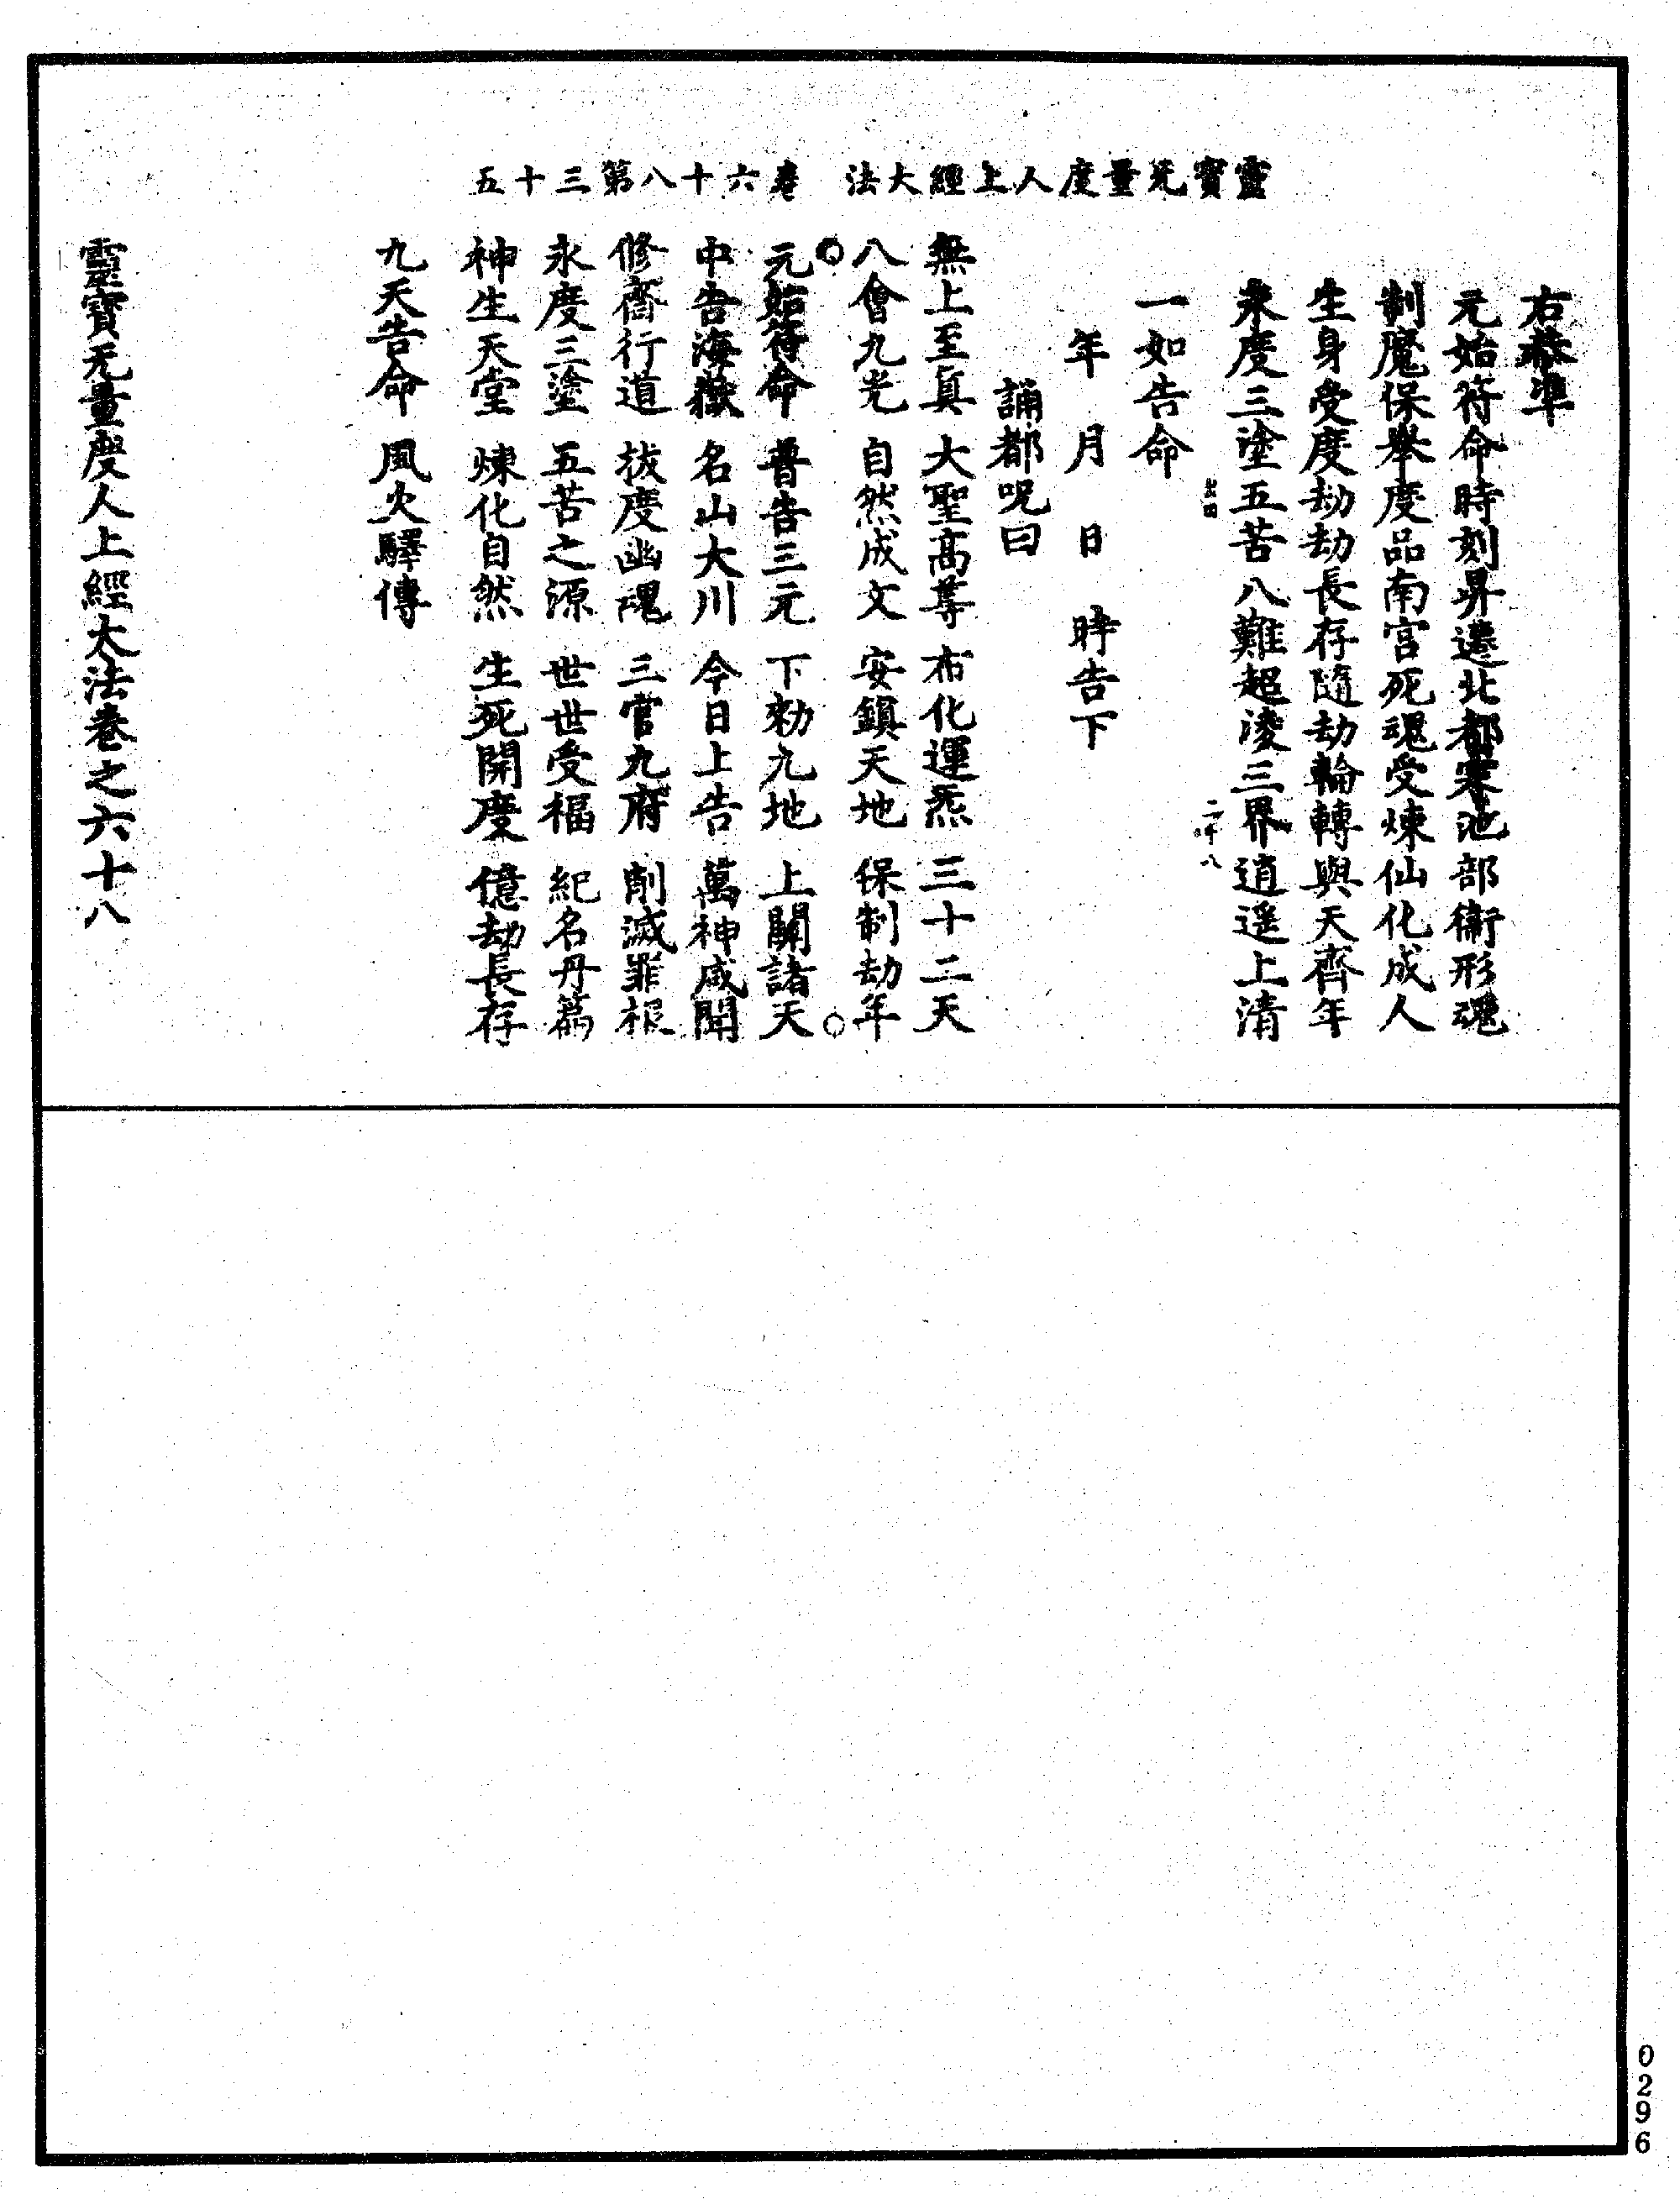 靈寶无量度人上經大法 卷六十八第三十五
右恭準
元始符命時刻昇遷北都寒池部衛形魂
制魔保舉度品南宮死魂受煉仙化成人
生身受度劫劫長存隨劫輪轉與天齊年
永度三塗五苦八難超淩三界逍遙上清
二十八
一如告命
年 月 日 時告下
誦都呪曰
無上至真 大聖高尊 布化運炁 三十二天
八會九光 自然成文 安鎮天地 保制劫年
元始符命 普告三元 下勑九地 上關諸天
中告海嶽 名山大川 今日上告 萬神咸聞
修齋行道 拔度幽魂 三官九府 削滅罪根
永度三塗 五苦之源 世世受福 紀名丹篇
神生天堂 煉化自然 生死開度 億劫長存
九天告命 風火驛傳
靈寶无量度人上經大法卷之六十八
0296